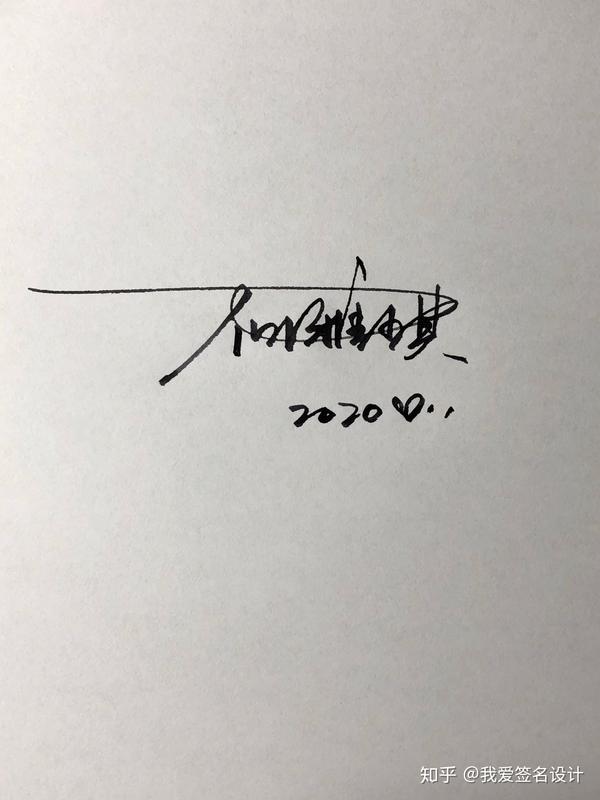 何雅琪
2020♡..
知乎 @我爱签名设计